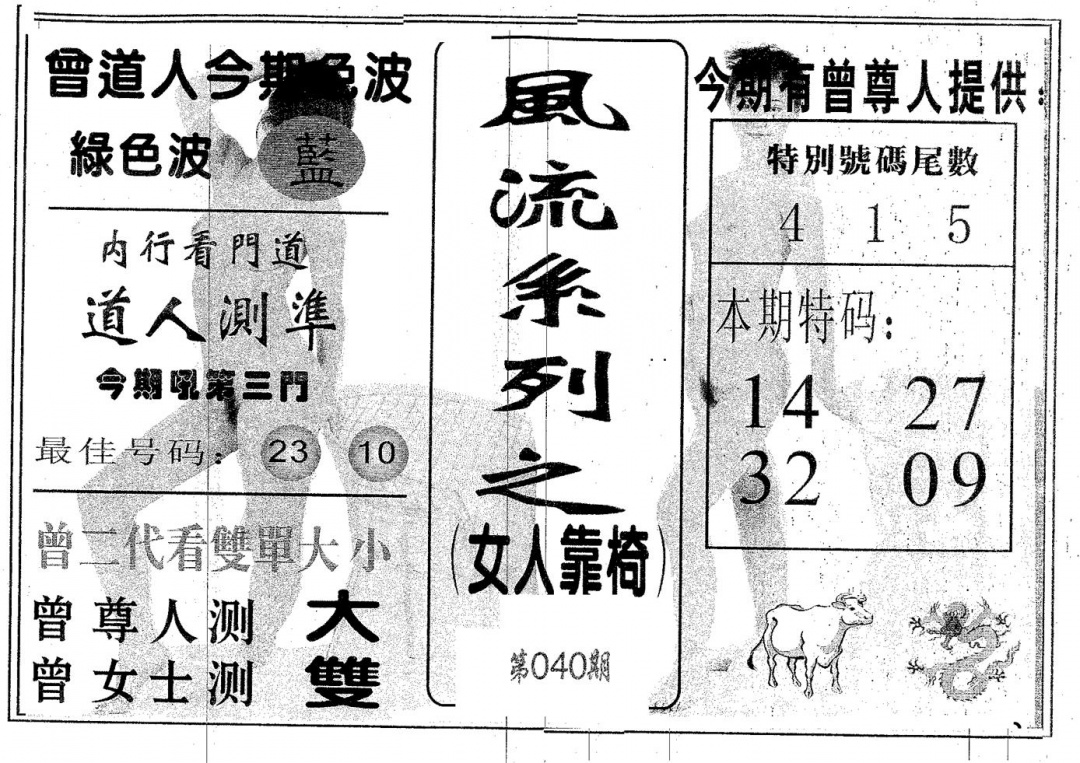 曾道人今期色波
綠色波 藍
内行看門道
道人測準
今期吼第三門
最佳号码: 23 10
曾二代看雙單大小
曾尊人测 大
曾女士测 雙
風流系列之
(女人靠椅)
第040期
今期有曾尊人提供:
特别號碼尾數
4 1 5
本期特码:
14 27
32 09